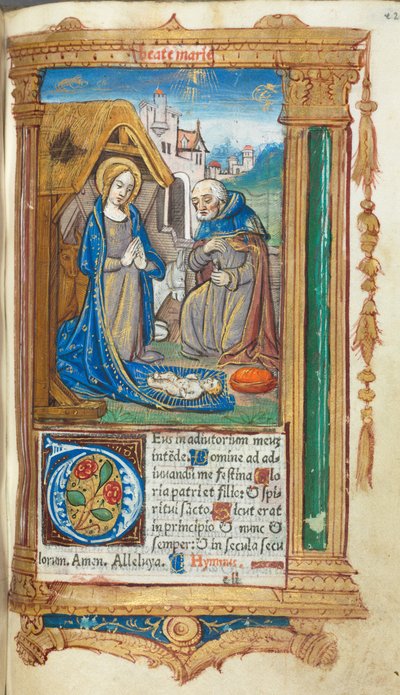 beate marie
Eus in adiutorium meuz
intēde. Domine ad ad
iuuandū me festina Glo
ria patri et filio: & spi
ritui sācto. Sicut erat
in principio & nunc &
semper: & in secula secu
lorum. Amen. Alleluya. Hymnus.